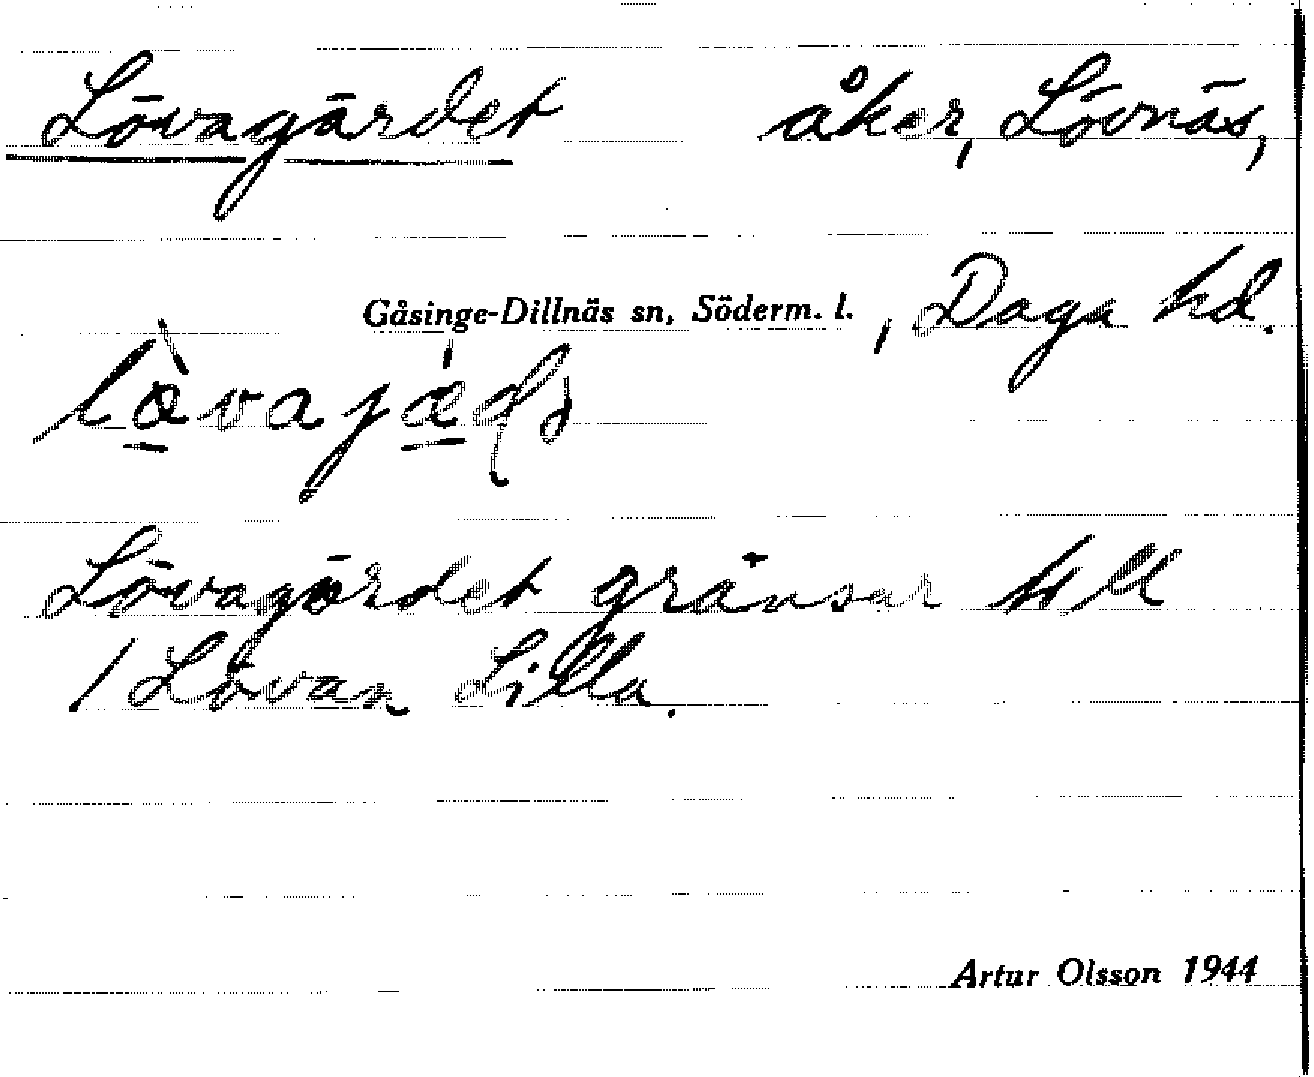 Lövagärdet åker, Lövnäs,
Gåsinge-Dillnäs sn, Söderm. l., Daga hd.
Lövagärdet gränsar till
/ Lövan Lilla.
Artur Olsson 1944